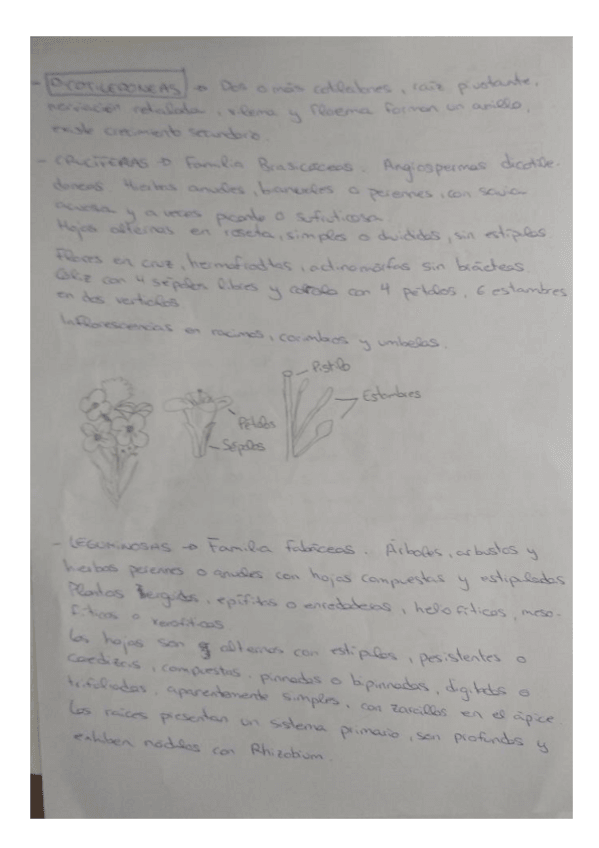 - DICOTILEDONEAS → Dos o más cotiledones, raíz pivotante,
nerviación reticulada, xilema y floema forman un anillo,
existe crecimiento secundario.
- CRUCÍFERAS → Familia Brasicáceas. Angiospermas dicotile-
dóneas. Hierbas anuales, bianuales o perennes, con savia
acuosa y a veces picante o sufruticosa.
Hojas alternas en roseta, simples o divididas, sin estípulas.
Flores en cruz, hermafroditas, actinomorfas sin brácteas.
Cáliz con 4 sépalos libres y corola con 4 pétalos, 6 estambres
en dos verticilos
Inflorescencias en racimos, corimbos y umbelas.
Pistilo
Estambres
Pétalos
Sépalos
- LEGUMINOSAS → Familia fabáceas. Árboles, arbustos y
hierbas perennes o anuales con hojas compuestas y estipuladas
Plantas erguidas, epífitas o enredaderas, heliofíticas, meso-
fíticas o xerofíticas
Las hojas son alternas con estípulas, pesistentes o
caedizas, compuestas, pinnadas o bipinnadas, digitadas o
trifoliadas, aparentemente simples, con zarcillos en el ápice.
Las raíces presentan un sistema primario, son profundas y
exhiben nódulos con Rhizobium.